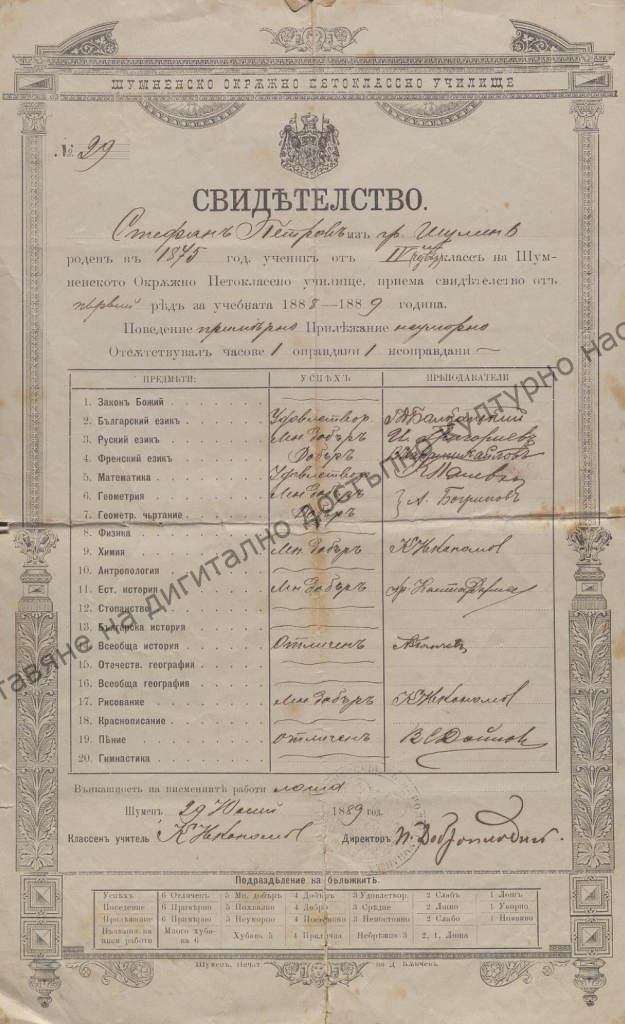 ШУМНЕНСКО ОКРѪЖНО ПЕТОКЛАССНО УЧИЛИЩЕ
№ 29
СВИДѢТЕЛСТВО.
Стефанъ Петровъ изъ гр. Шуменъ
роденъ въ 1875 год. ученикъ отъ IV классъ на Шум-
ненското Окрѫжно Петоклассно училище, приема свидѣтелство отъ
първий редъ за учебната 1888—1889 година.
Поведение примѣрно Прилѣжание неуморно
Отсѫтствувалъ часове 1 оправдани 1 неоправдани —
ПРЕДМЕТИ: УСПѢХЪ ПРѢПОДАВАТЕЛИ
1. Законъ Божий
2. Български езикъ Удовлетвор.
3. Руский езикъ Мн. добъръ
4. Френский езикъ Добъръ
5. Математика Удовлетвор.
6. Геометрия Мн. добъръ
7. Геометр. чъртание Добъръ
8. Физика
9. Химия Мн. добъръ
10. Антропология
11. Ест. история Мн. добъръ
12. Стопанство
13. Българска история
14. Всеобща история Отличенъ
15. Отечеств. география
16. Всеобща география
17. Рисование Мн. добъръ
18. Краснописание
19. Пѣние Отличенъ
20. Гимнастика
Вънкашность на писменнитѣ работи лоша
Шуменъ 29 Юний 1889 год.
Классенъ учитель Директоръ
Подраздѣление на бѣлѣжкитѣ.
Успѣхъ 6 Отличенъ 5 Мн. добъръ 4 Добъръ 3 Удовлетвор. 2 Слабъ 1 Лошъ
Поведение 6 Примѣрно 5 Похвално 4 Добро 3 Срѣдне 2 Лошо 1 Укорно
Прилѣжание 6 Примѣрно 5 Неуморно 4 Постоянно 3 Непостоянно 2 Слабо 1 Никакво
Много хубава 6 Хубавъ 5 4 Прилична Небрѣжна 3 2, 1, Лоша
Шуменъ, Печат.
тавяне на дигитално достъпно културно нас